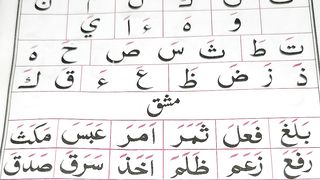 و ه ء ا ي
تَ طَ ثَ سَ صَ حَ هَ
ذَ زَ ضَ ظَ عَ ءَ قَ كَ
مشق
بَلَغَ فَعَلَ ثَمَرَ اَمَرَ عَبَسَ مَكَثَ
رَفَعَ زَعَمَ ظَلَمَ اَخَذَ سَرَقَ صَدَقَ